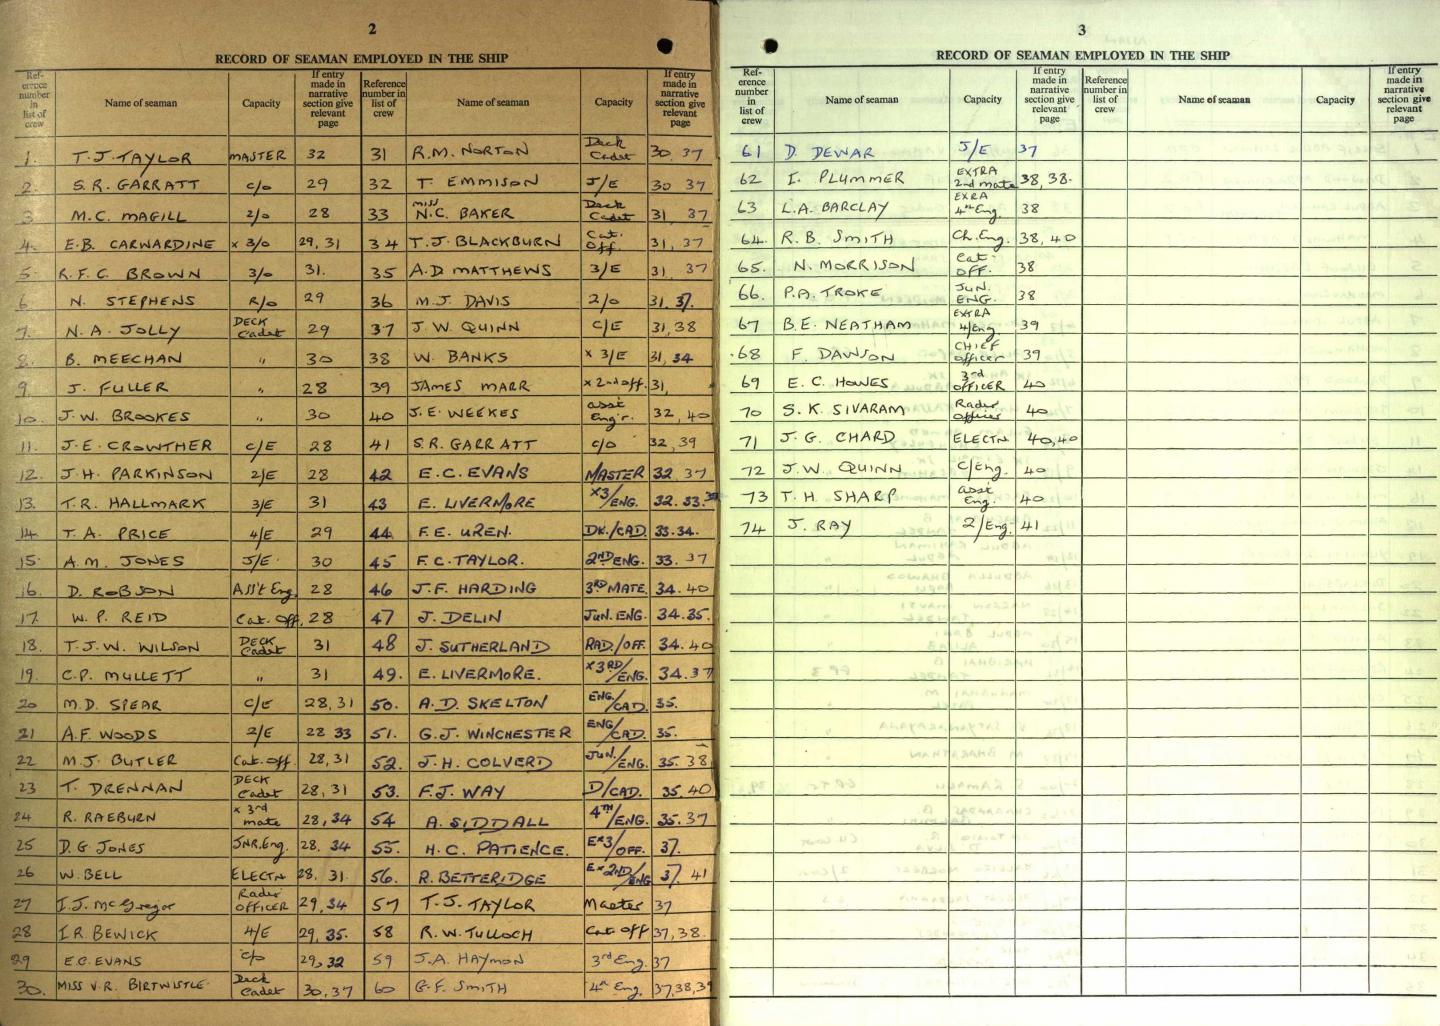 2
RECORD OF SEAMAN EMPLOYED IN THE SHIP
Ref-erence number in list of crew | Name of seaman | Capacity | If entry made in narrative section give relevant page | Reference number in list of crew | Name of seaman | Capacity | If entry made in narrative section give relevant page
1. T.J. TAYLOR MASTER 32 31 R.M. NORTON Deck Cadet 30 37
2. S.R. GARRATT c/o 29 32 T. EMMISON J/E 30 37
3. M.C. MAGILL 2/o 28 33 miss N.C. BAKER Deck Cadet 31, 37
4. E.B. CARWARDINE x 3/o 29, 31 34 T.J. BLACKBURN Cat. Off. 31, 37
5. R.F.C. BROWN 3/o 31. 35 A.D MATTHEWS 3/E 31, 37
6. N. STEPHENS R/o 29 36 M.J. DAVIS 2/o 31. 37.
7. N.A. JOLLY DECK Cadet 29 37 J.W. QUINN C/E 31, 38
8. B. MEECHAN " 30 38 W. BANKS x 3/E 31, 34
9. J. FULLER " 28 39 JAMES MARR x 2nd off. 31,
10. J.W. BROOKES " 30 40 J.E. WEEKES asst Eng'r. 32, 40
11. J.E. CROWTHER C/E 28 41 S.R. GARRATT c/o 32, 39
12. J.H. PARKINSON 2/E 28 42 E.C. EVANS MASTER 32 37
13. T.R. HALLMARK 3/E 31 43 E. LIVERMORE x3/ENG. 32. 33.
14. T.A. PRICE 4/E 29 44 F.E. UREN. DK./CAD. 33. 34.
15. A.M. JONES J/E. 30 45 F.C. TAYLOR. 2ND ENG. 33. 37
16. D. ROBSON Ass't Eng. 28 46 J.F. HARDING 3RD MATE. 34. 40
17. W.P. REID Cat. Off. 28 47 J. DELIN JUN. ENG. 34. 35.
18. T.J.W. WILSON DECK Cadet 31 48 J. SUTHERLAND RAD./OFF. 34. 40
19. C.P. MULLETT " 31 49. E. LIVERMORE. x 3RD/ENG. 34. 37
20 M.D. SPEAR C/E 28, 31 50. A.D. SKELTON ENG./CAD. 35.
21 A.F. WOODS 2/E 28 33 51. G.J. WINCHESTER ENG/CAD. 35.
22 M.J. BUTLER Cat. Off. 28, 31 52. J.H. COLVERD JUN./ENG. 35. 38
23 T. DRENNAN DECK Cadet 28, 31 53. F.J. WAY D/CAD. 35. 40
24 R. RAEBURN x 3rd mate 28, 34 54 A. SIDDALL 4TH/ENG. 35. 37
25 D.G JONES JNR. Eng. 28, 34 55. H.C. PATIENCE. EX 3/OFF. 37.
26 W. BELL ELECTN 28, 31. 56. R. BETTERIDGE Ex 2ND/ENG 37. 41
27 I.J. McGregor Radio OFFICER 29, 34 57 T.J. TAYLOR Master 37
28 I.R. BEWICK 4/E 29, 35. 58 R.W. TULLOCH Cat Off 37, 38.
29 E.C. EVANS c/o 29, 32 59 J.A. HAYMON 3rd Eng. 37
30. MISS V.R. BIRTWISTLE Deck Cadet 30, 37 60 G.F. SMITH 4th Eng. 37, 38, 39
3
RECORD OF SEAMAN EMPLOYED IN THE SHIP
Ref-erence number in list of crew | Name of seaman | Capacity | If entry made in narrative section give relevant page | Reference number in list of crew | Name of seaman | Capacity | If entry made in narrative section give relevant page
61 D. DEWAR J/E 37
62 I. PLUMMER EXTRA 2nd mate 38, 38.
63 L.A. BARCLAY EXRA 4th Eng. 38
64. R.B. SMITH Ch. Eng. 38, 40
65. N. MORRISON Cat. OFF. 38
66. P.A. TROKE JUN. ENG. 38
67 B.E. NEATHAM EXTRA 4/Eng 39
68 F. DAWSON CHIEF officer 39
69 E.C. HOWES 3rd OFFICER 40
70 S.K. SIVARAM Radio officer 40
71 J.G. CHARD ELECTN 40, 40
72 J.W. QUINN C/Eng. 40
73 T.H. SHARP asst Eng. 40
74 J. RAY 2/Eng. 41